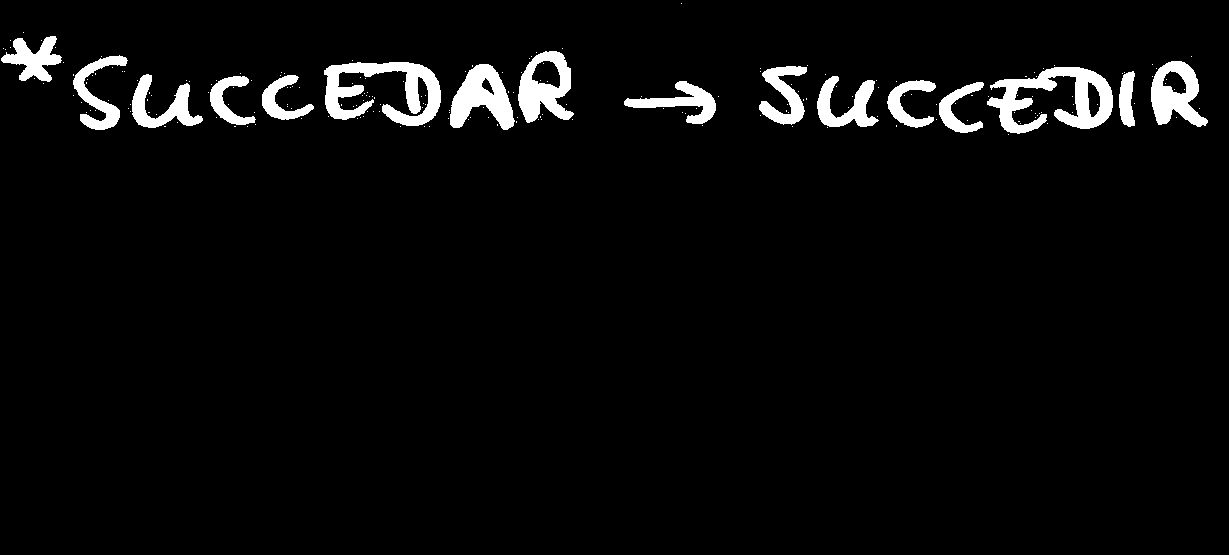 *SUCCEDAR → SUCCEDIR